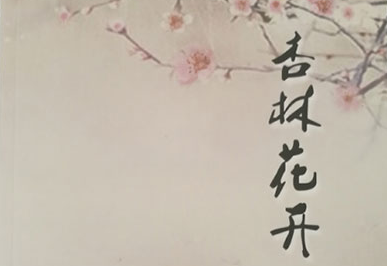 杏林花开